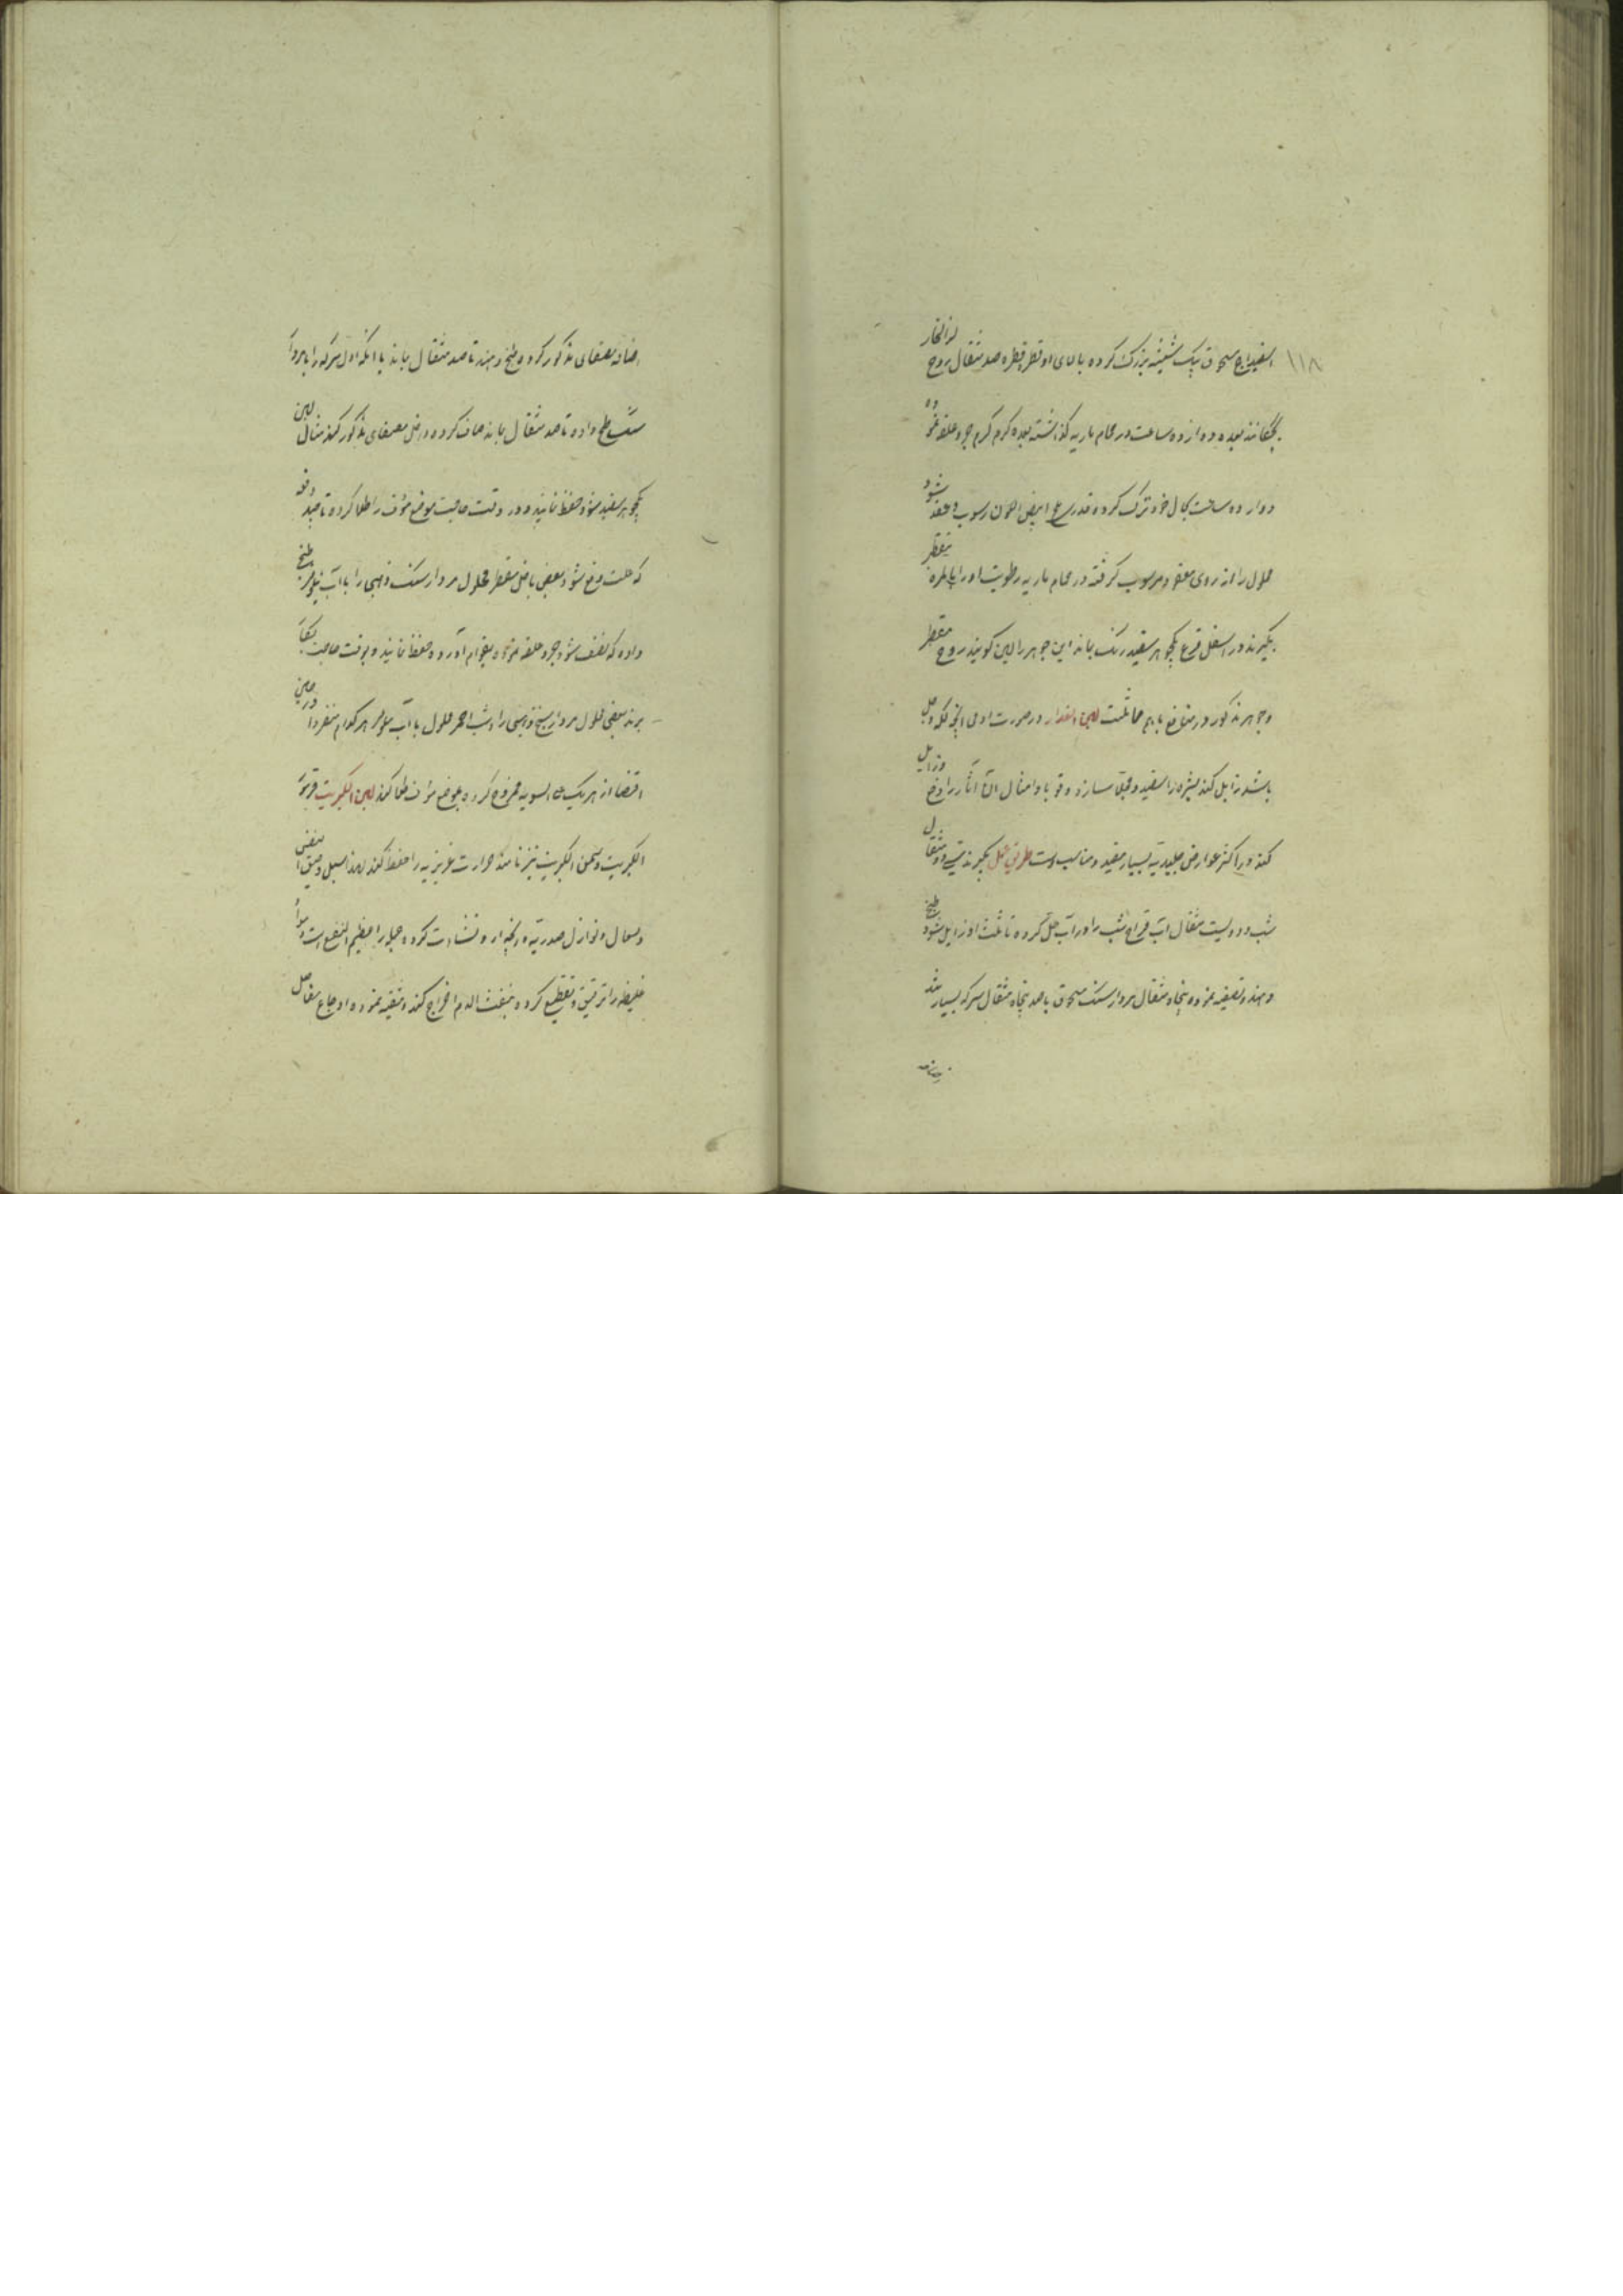 ۱۱۸
اسفیداج مسحوق بیک شیشه بزرک کرده بالای او قطره قطره صد مثقال روح
بچکانند بعده دوازده ساعت در حمام ماریه کذاشته بعده کرم کرم جر و علقه نموده
دوازده ساعت بحال خود ترک کرده قدری ابیض اللون رسوب و عقد شود
محلول را از روی معقود مرسوب کرفته در حمام ماریه رطوبت او را بالمره تقطیر
بکیرند در اسفل قرع یکجوهر سفید رنک بماند این جوهر را لبن کویند روح مقطر
و جوهر مذکور در منافع با هم مماثلت لبن العذار در صورت اولی
باشد زایل کند بشره را سفید و مجلا سازد و قوبا و امثال آن آثار را دفع و زایل
کند در اکثر عوارض جلیدیه بسیار مفید و مناسب است طریق عمل بکیرند بیست و دو مثقال
شب و دویست مثقال آب قراح شب را در آب حل کرده تا ثلث او زایل شود طبخ
دهند و تصفیه نموده پنجاه مثقال مردارسنک مسحوق با صد پنجاه مثقال سرکه بسیار تند
اضافه مصفای مذکور کرده طبخ دهند تا صد مثقال بماند یا آنکه اول سرکه را با مردار
سنک طبخ داده تا صد مثقال بماند صاف کرده داخل مصفای مذکور کنند مثال لبن
یکجوهر سفید شود حفظ نمایند و در وقت حاجت موضع مؤف را طلا کرده تا چند دفعه
که علت دفع شود بعضی با خل مقطر محلول مردارسنک ذهبی را با آب نیلوفر طبخ
داده که نصف شود جر و علقه نموده بقوام آورده حفظ نمایند و بوقت حاجت بکار
برند بعضی محلول مردارسنج ذهبی را و شب احمر محلول با آب نیلوفر هر کدام منفردا در حین
اقتضا از هر یک علی السویه ممزوج کرده بموضع مؤف طلا کنند لبن الکبریت
الکبریت و سمن الکبریت نیز نامند حرارت غریزیه را حفظ کند لهذا سل و ضیق النفس
و سعال و نوازل صدریه
غلیظه را ترقیق و تقطیع کرده بنفث الدم اخراج کند و تنقیه نموده اوجاع مفاصل